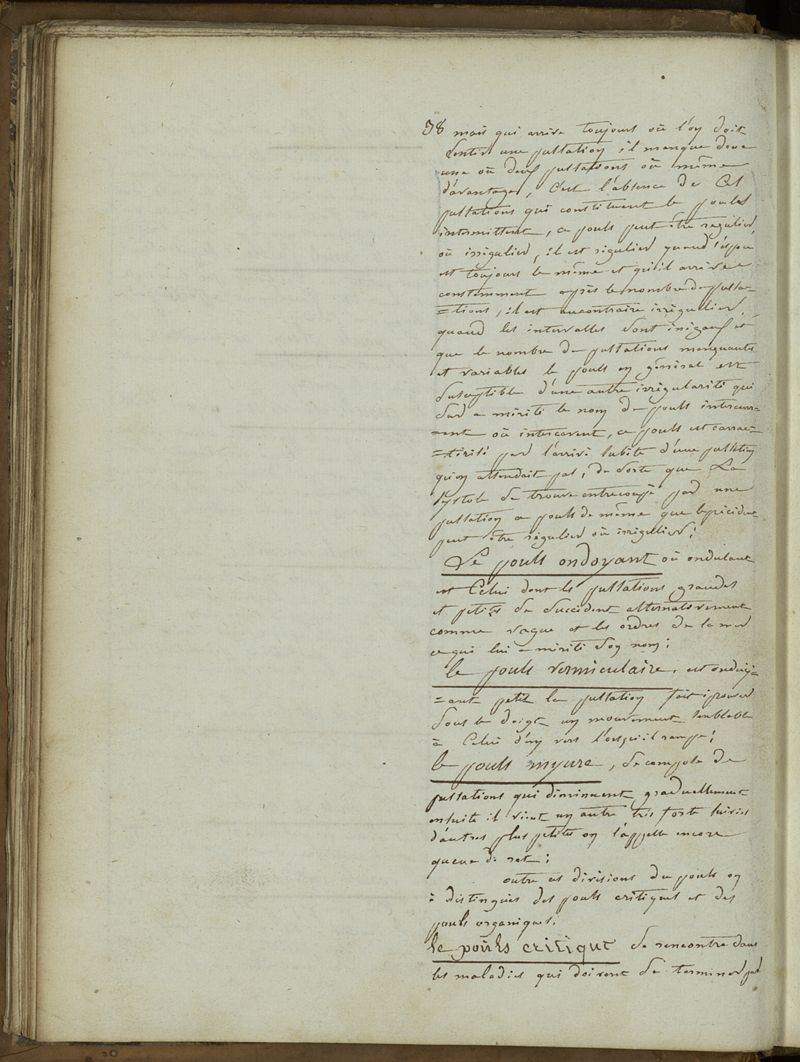 38 mais qui arrive toujours où l'on doit
sentir une pulsation il manque donc
une où deux pulsations où même
d'avantages, c'est l'absence de Ces
pulsations qui constituent le poules
intermittent, ce pouls peut être regulier,
où irrégulier, il est régulier quand l'espa
est toujours le même et qu'il arrive
constemment après le nombre de pulsa-
=tions, il est aucontraire irrégulier,
quand les intervalles sont inégaux et
que le nombre de pulsations manquants
est variables le pouls en général est
susceptible d'une autre irrégularité qui
lui a mérité le nom de pouls intercur=
=ent où intercurent, ce pouls est carrac=
=térisé par l'arrivé subite d'une pulsation
qu'on attendait pas, de sorte que La
systole se trouve entrecoupé par une
pulsation ce pouls de même que le précident
peut être régulier où irrégullier;
Le pouls ondoyant où ondulant
est Celui dont les pulsations grandes
et petites se succèdent alternativement
comme vague et les ordres de la mer
ce qui lui a mérité son nom;
le pouls vermiculaire, est ondoy=
=ant petit la pulsation fait éprouver
sous le doigt un mouvement semblable
à Celui d'un vers l'orsqu'il rampe;
le pouls myure, se compose de
pulsations qui diminuent graduellement
ensuite il vient un autre très forte suivis
d'autres plus petites on l'appelle encore
queue de rat;
outre ces divisions du pouls on
à distingués des pouls critiques et des
pouls organiques;
le poûls critique se rencontre dans
les maladies qui doivent se terminer par